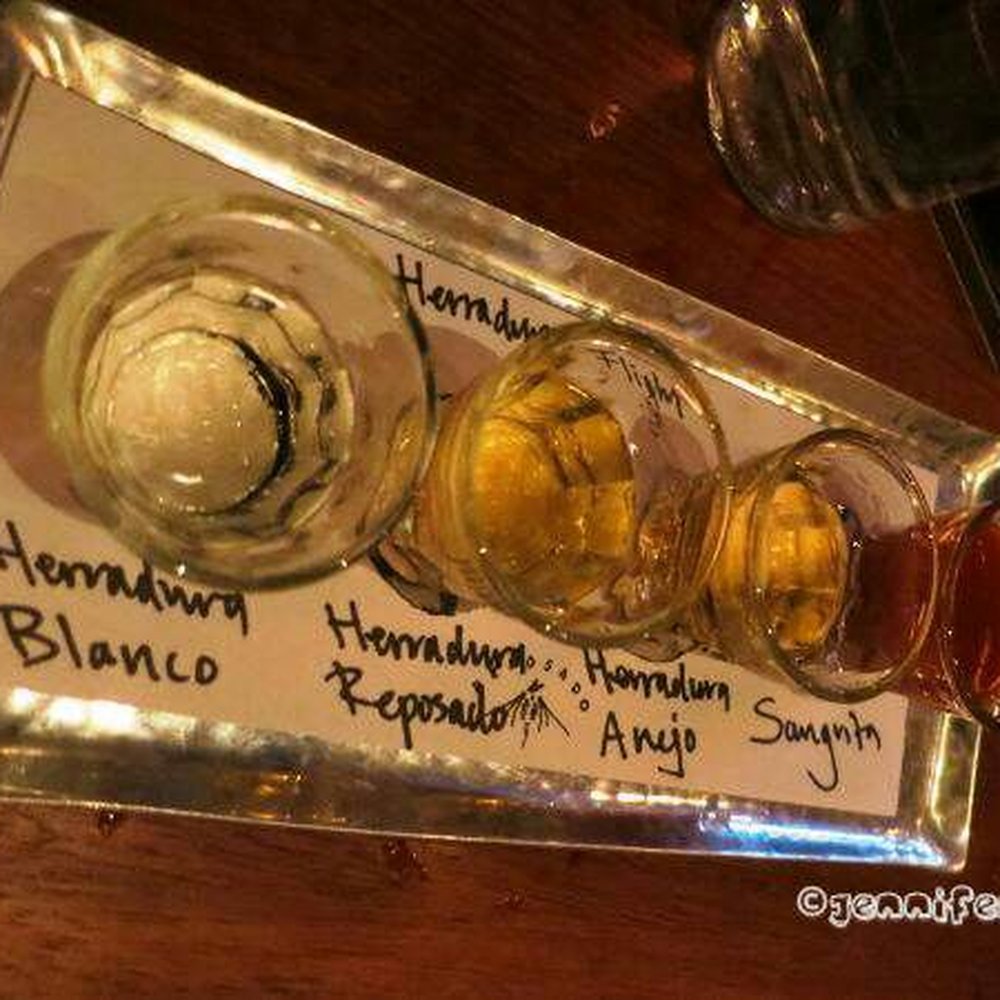 Herradura
Flight
Herradura
Blanco
Herradura
Reposado
Herradura
Anejo
Sangrita
©jennife